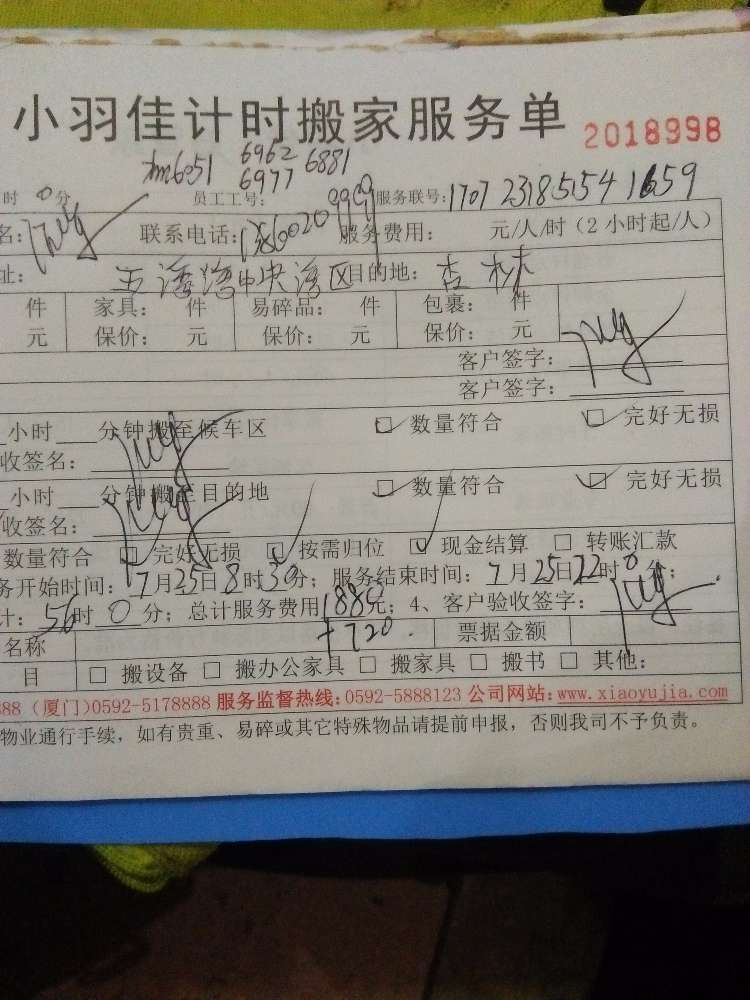 小羽佳计时搬家服务单 2018998
xm6051 6962 6881
6977
时 0分 员工工号: 服务联号: 1707 23185154 1659
名: 联系电话: 服务费用: 元/人/时(2小时起/人)
址: 五缘湾中央湾区 目的地: 杏林
件 家具: 件 易碎品: 件 包裹: 件
元 保价: 元 保价: 元 保价: 元
客户签字:
客户签字:
小时 分钟搬至候车区 数量符合 完好无损
收签名:
小时 分钟搬至目的地 数量符合 完好无损
收签名:
数量符合 完好无损 按需归位 现金结算 转账汇款
务开始时间: 7月25日8时30分; 服务结束时间: 7月25日22时0分;
计: 56时0分; 总计服务费用 元; 4、客户验收签字:
+720.
名称 票据金额
目 搬设备 搬办公家具 搬家具 搬书 其他:
888(厦门)0592-5178888 服务监督热线:0592-5888123 公司网站:www.xiaoyujia.com
物业通行手续,如有贵重、易碎或其它特殊物品请提前申报,否则我司不予负责。